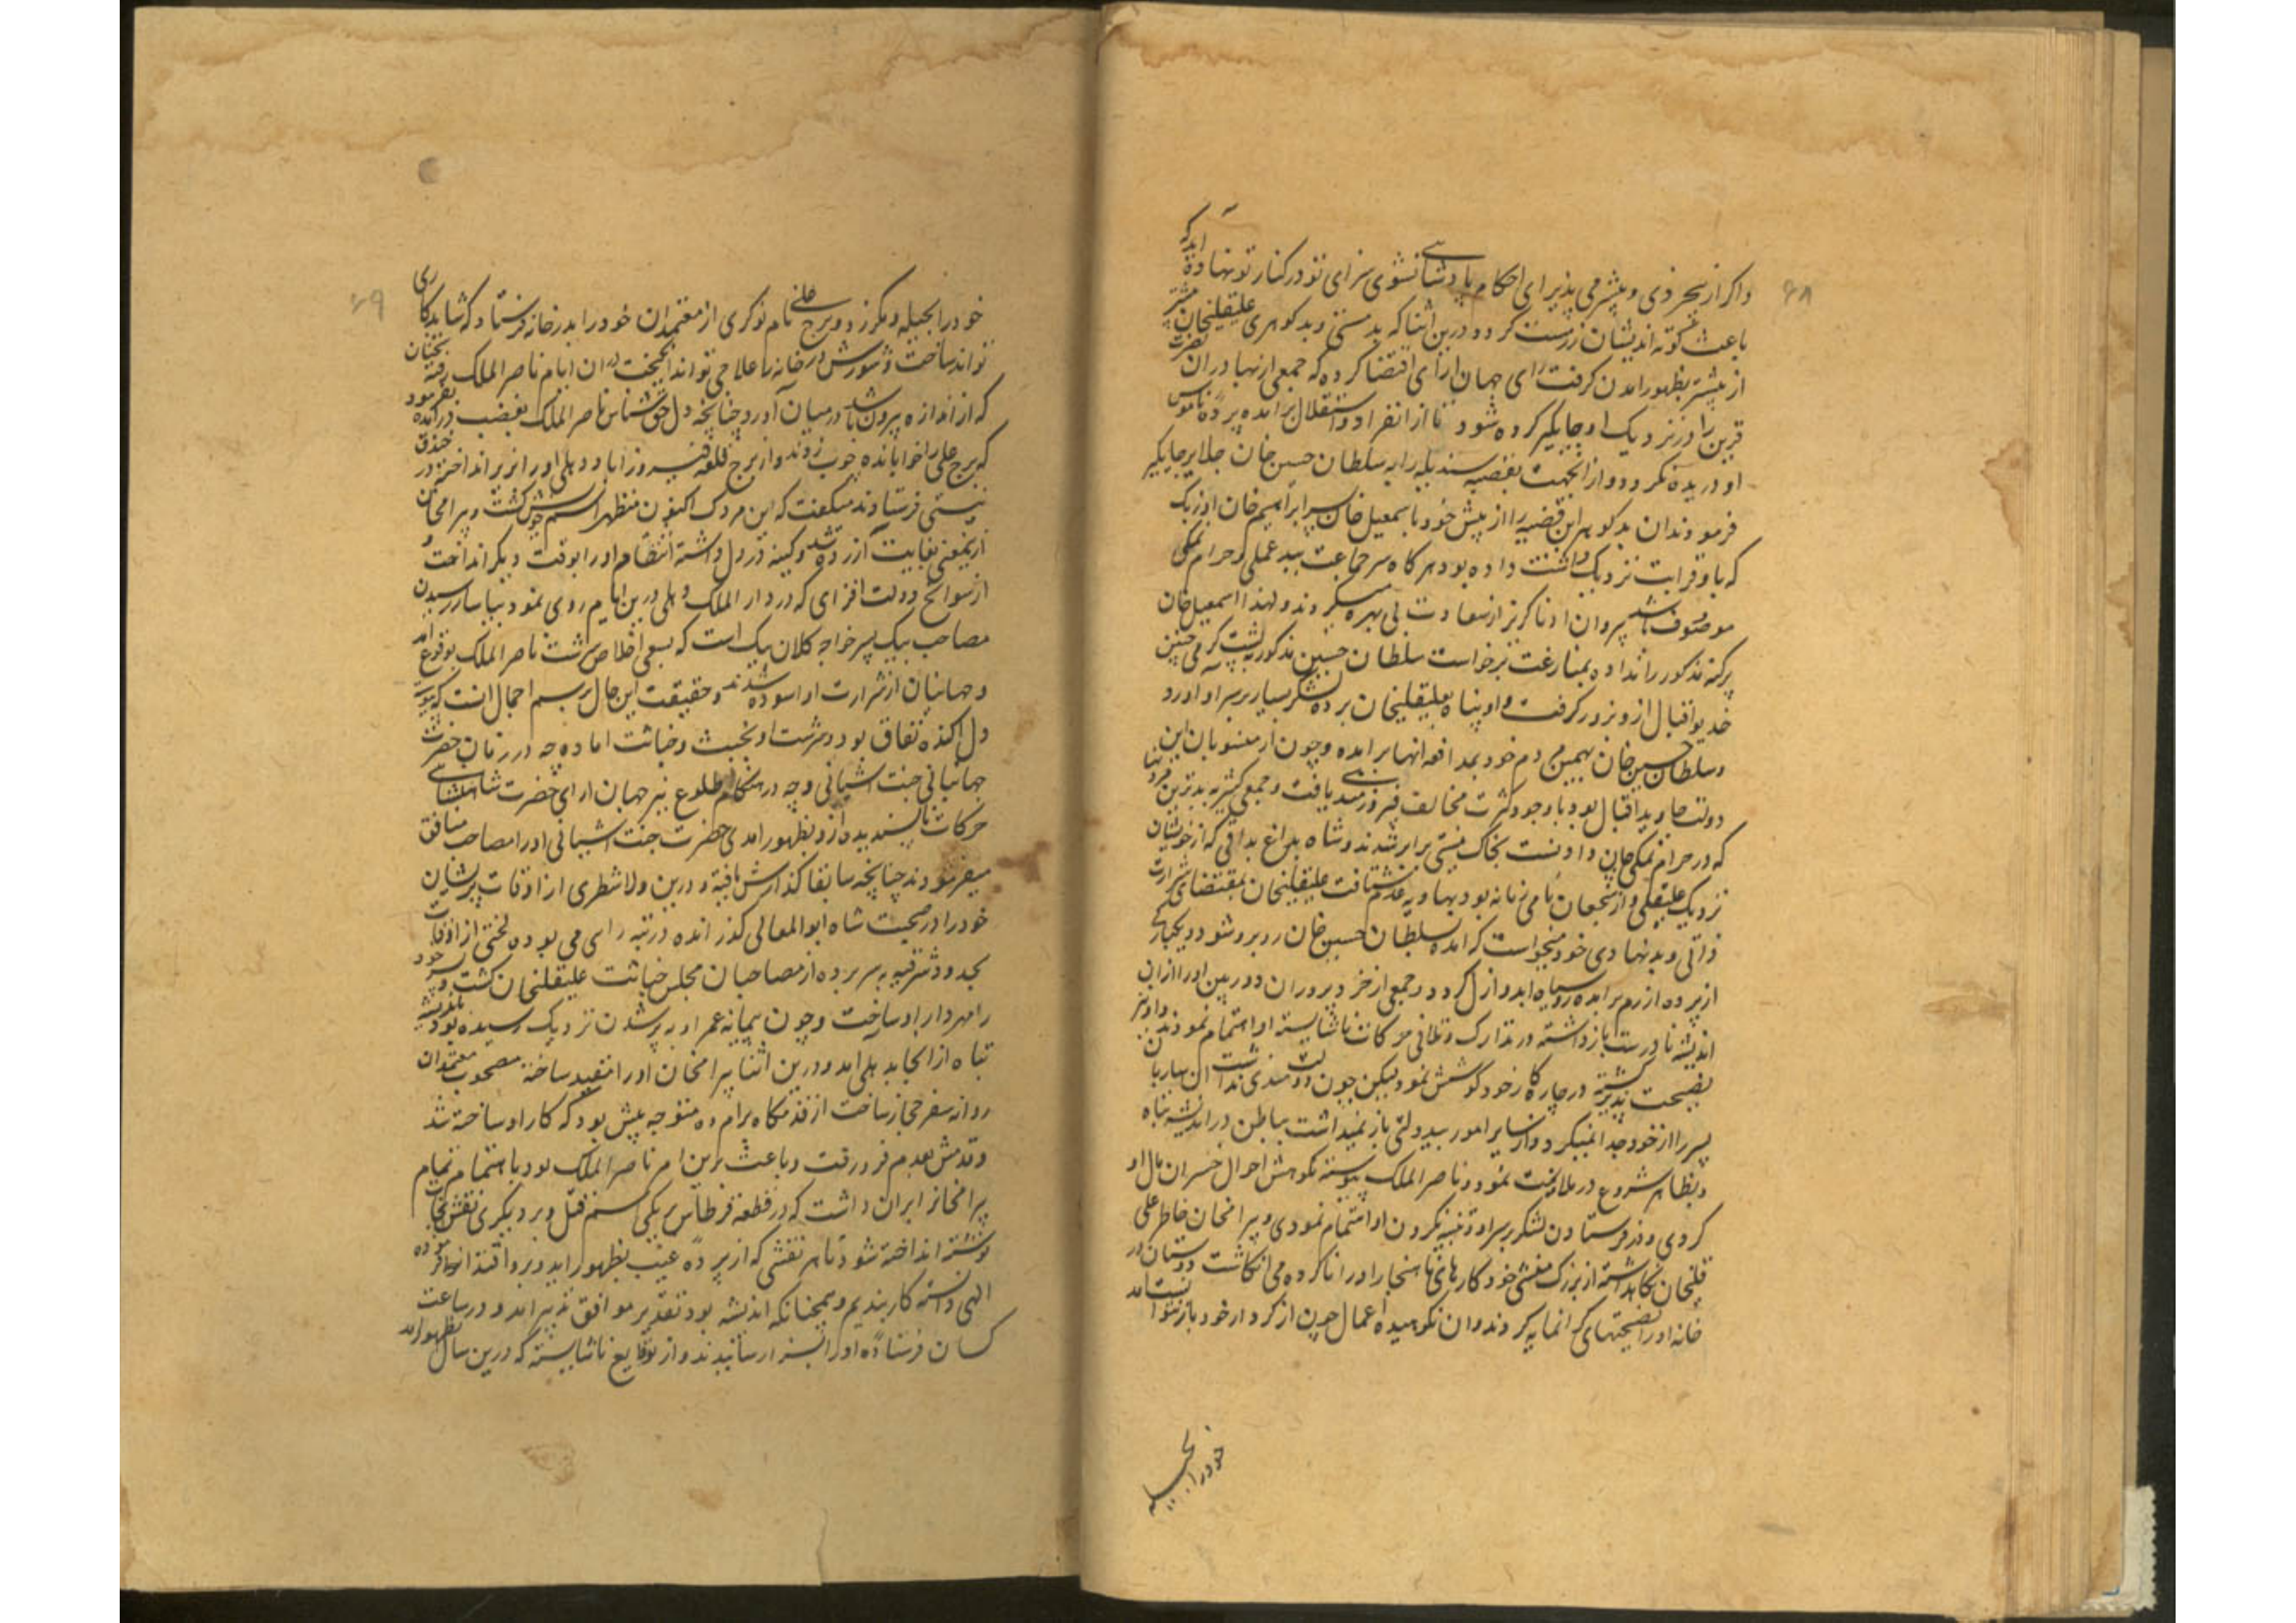 ۶۸
واکر از بیخردی و بیشرمی پذیرای احکام پادشاهی نشوی سزای تو در کنار تو نهاده آید که
باعث کوته اندیشان زرپرست کردد درین اثنا که بدمستی و بدکوهری علیقلیخان بیشتر
از پیشتر بظهور آمدن کرفت رای جهان ارای اقتضا کرده که جمعی از بهادران نصرت
قرین را در نزدیک او جایکیر کرده شود تا از انفراد و استقلال برآمده پرده ناموس
او دریده نکردد و از انجهت قصبه سندیله را به سلطان حسین خان جلایر جایکیر
فرمودند ان بدکوهر این قصبه را از پیش خود باسمعیل خان پسر ابراهیم خان اوزبک
که باو قرابت نزدیک داشت داده بود هرکاه سر جماعت ببدعملی و حرام نمکی
موصوف باشد پیروان او ناکزیر از سعادت بی بهره میکردند و لهذا اسمعیل خان
پرکنه مذکور را نداده بمنازعت برخواست سلطان حسین مذکور به پشت کرمی چنین
خدیو اقبال ازو بزور کرفت و او پناه بعلیقلیخان برده لشکر بسیار بر سر او آورد
و سلطان حسین خان بهمین مردم خود بمدافعه انها برآمده و چون از منسوبان این
دولت جاوید اقبال بود با وجود کثرت مخالف فیروزمندی یافت و جمعی کثیر بدترین مردنها
که در حرام نمکی جان داد و نسبت بخاک نیستی برابر شدند و شاه بداغ بداقی که از خویشان
نزدیک علیقلی و از شجعان نامی زمانه بود بهاویه عدم شتافت علیقلیخان بمقتضای شرارت
ذاتی و بدنهادی خود میخواست که آمده بسلطان حسین خان روبرو شود و یکبارکی
از پرده ازرم برآمده روسیاه ابد و ازل کردد و جمعی از خردپروران دوربین او را ازان
اندیشه نادرست بازداشته در تدارک و تلافی حرکات ناشایسته او اهتمام نمودند و او نیز
نصیحت پذیر کشته در چاره کار خود کوشش نمود لیکن چون دولتمندی نداشت ان ساربان
پسر را از خود جدا نمیکرد و از سایر امور بیدولتی باز نمیداشت بباطن در اندیشه تباه
و بظاهر شروع در ملایمت نمود و ناصر الملک پیوسته نکوهش احوال خسران مآل او
کردی و در فرستادن لشکر بر سر او و تنبیه کردن او اهتمام نمودی و بیرامخان خاطر علی
قلیخان نکاهداشته از بزرک منشی خود کارهای ناهنجار او را ناکرده می انکاشت دوستان در
خانه او را نصیحتهای کرانمایه کردند و ان نکوهیده اعمال چون از کردار خود باز نتوانست آمد
خود را بحیله
۶۹
خود را بحیله و مکر زد و برج علی نام نوکری از معتمدان خود را بدرخانه فرستاد که شاید کاری
تواند ساخت و شورش درخانه را علاجی تواند انکیخت در ان ایام ناصر الملک رفته سخنان
که از اندازه بیرون باشد در میان آورد چنانچه دل حق شناس ناصر الملک بغضب درآمده بفرمود
که برج علی را خوابانده چوب زدند و از برج قلعه فیروزاباد دهلی او را زیر انداخته در خندق
نیستی فرستادند میکفت که این مردک اکنون مظهر اسم خویش کشت و بیرامخان
ازینمعنی بغایت آزرده شد و کینه در دل داشته انتقام او را بوقت دیکر انداخت و
از سوانح دولت افزای که در دار الملک دهلی درین ایام روی نمود بیاسا رسیدن
مصاحب بیک پسر خواجه کلان بیک است که بسعی اخلاص سرشت ناصر الملک بوقوع آمد
و جهانیان از شرارت او اسوده شدند و حقیقت این حال برسم اجمال انست که پیوسته
دل اکنده نفاق بود و سرشت او بخبث و خباثت اماده چه در زمان حضرت
جهانبانی جنت اشیانی و چه در هنکام طلوع نیر جهان ارای حضرت شاهنشاهی
حرکات ناپسندیده ازو بظهور آمدی حضرت جنت اشیانی او را مصاحب منافق
میفرمودند چنانچه سابقا کذارش یافته و درین ولا شطری از اوقات پریشان
خود را در صحبت شاه ابو المعالی کذرانده در تبه رای می بوده لختی از اوقات
بحدود شرقیه بسر برده از مصاحبان مجلس خباثت علیقلیخان کشت و پسر خود
را مهردار او ساخت و چون پیمانه عمر او به پر شدن نزدیک رسیده بود باندیشه
تباه از انجا بدهلی آمد و درین اثنا بیرامخان او را مقید ساخته مصحوب معتمدان
روانه سفر حجاز ساخت از قدمکاه برآمده متوجه پیش بود که کار او ساخته شد
و قدمش بعدم فرو رفت و باعث برین امر ناصر الملک بود باهتمام تمام
بیرامخانرا بران داشت که در قطعه قرطاس بر یکی اسم قتل و بر دیکری نقش نجات
نوشته انداخته شود تا هر نقشی که از پرده غیب بظهور آید و بروافتد انرا فرموده
الهی دانسته کاربندیم و همچنانکه اندیشه بود تقدیر موافق تدبیر آمد و در ساعت
کسان فرستاده او را بسزا رسانیدند و از وقایع ناشایسته که درین سال بظهور آمد